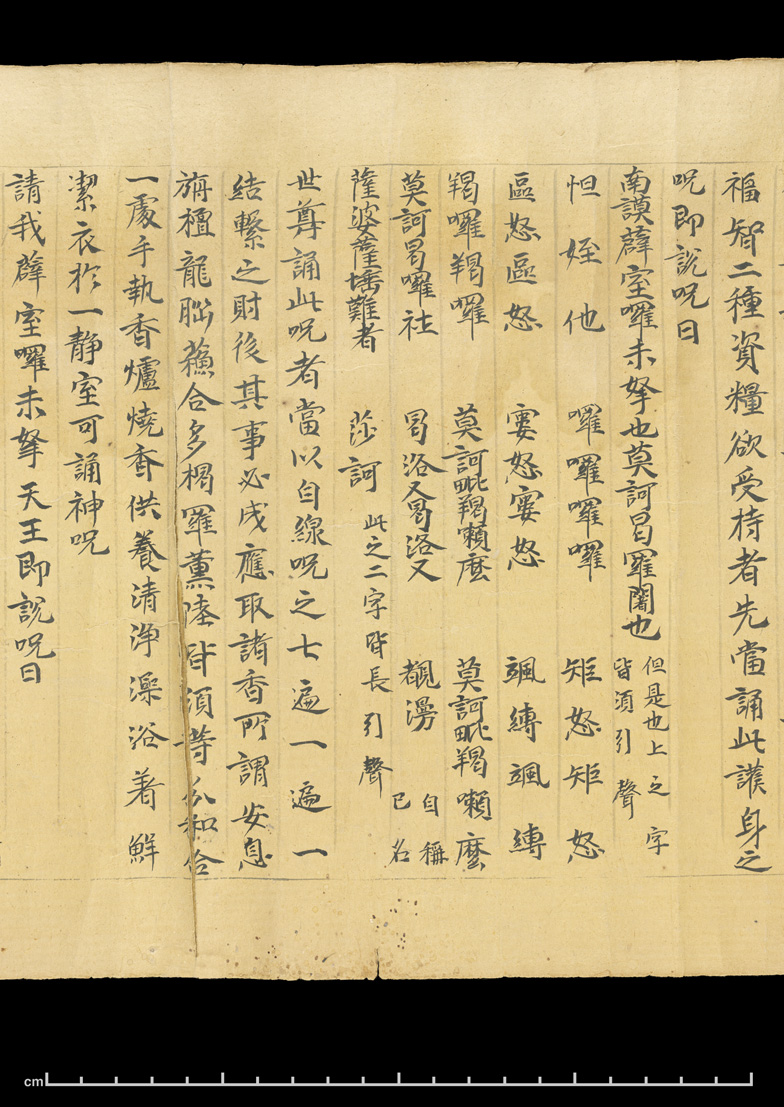 福智二種資糧欲受持者先當誦此護身之
呪即說呪曰
南謨薜室囉末拏也莫訶曷羅闍也 但是也上之字皆須引聲
怛姪他 囉囉囉囉 矩怒矩怒
區怒區怒 窶怒窶怒 颯縛颯縛
羯囉羯囉 莫訶毗羯囉麼 莫訶毗羯囉麼
莫訶曷囉社 曷洛叉曷洛叉 覩漫 自稱己名
薩婆薩埵難者 莎訶 此之二字皆長引聲
世尊誦此呪者當以白線呪之七遍一遍一
結繫之肘後其事必成應取諸香所謂安息
旃檀龍腦蘇合多揭羅薰陸皆須等分和合
一處手執香爐燒香供養清淨澡浴著鮮
潔衣於一靜室可誦神呪
請我薜室囉末拏天王即說呪曰